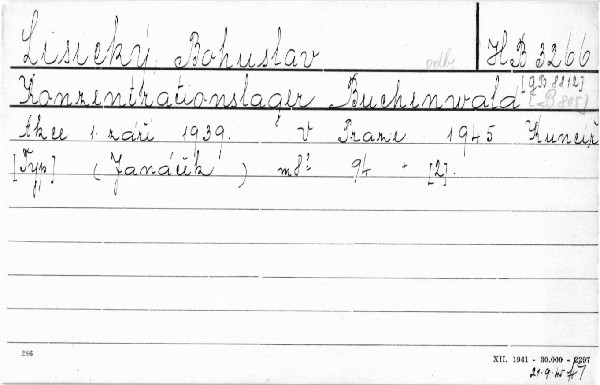 Lisický, Bohuslav odb. HB 3266
Konzentrationslager Buchenwald [QB 8812]
[B 805]
Akce 1. září 1939. v Praze 1945 Kuncíř
[Typ] (Janáček) m8° 94 + [2].
286
XII. 1941 - 30.000 - 2297
21.9.45